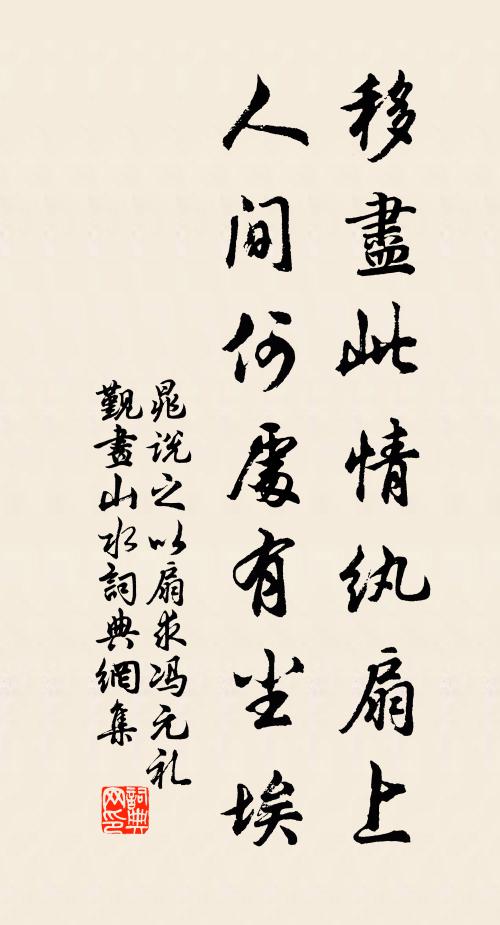 移盡此情紈扇上
人間何處有尘埃
晁说之以扇求冯元礼
觐畫山水詞典網集
詞典
网印